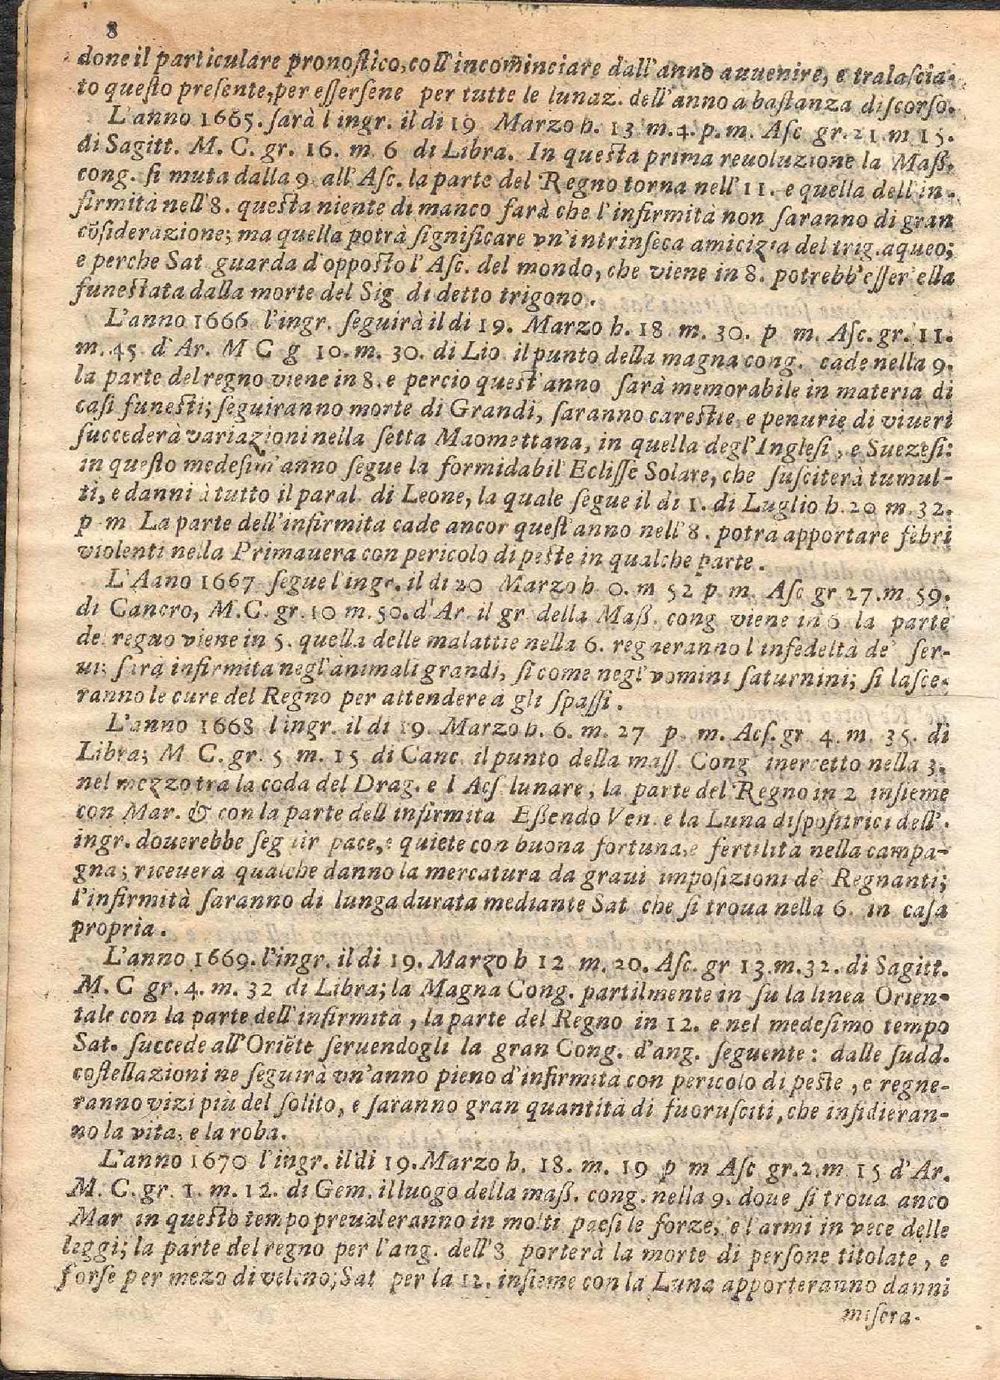 8
done il particulare pronoſtico, coll'incominciare dall'anno auuenire, e tralaſcia-
to queſto preſente, per eſſerſene per tutte le lunaz. dell'anno a baſtanza diſcorſo.
L'anno 1665. ſarà l ingr. il di 19 Marzo h. 13 m. 4. p. m. Aſc gr. 21. m 15.
di Sagitt. M. C. gr. 16. m 6 di Libra. In queſta prima reuoluzione la Maſſ.
cong. ſi muta dalla 9 all'Aſc. la parte del Regno torna nell'11. e quella dell'in-
firmità nell'8. queſta niente di manco farà che l'infirmità non ſaranno di gran
cõſiderazione; ma quella potrà ſignificare vn'intrinſeca amicizia del trig. aqueo;
e perche Sat guarda d'oppoſto l'Aſc. del mondo, che viene in 8. potrebb'eſſer ella
funeſtata dalla morte del Sig di detto trigono.
L'anno 1666 l'ingr. ſeguirà il di 19. Marzo h. 18 m. 30. p m. Aſc. gr. 11.
m. 45 d'Ar. M C g 10. m. 30. di Lio il punto della magna cong. cade nella 9.
la parte del regno viene in 8. e percio queſt'anno ſarà memorabile in materia di
caſi funeſti; ſeguiranno morte di Grandi, ſaranno careſtie, e penurie di viueri
ſuccederà variazioni nella ſetta Maomettana, in quella degl'Ingleſi, e Suezeſi:
in queſto medeſim'anno ſegue la formidabil Ecliſſe Solare, che ſuſciterà tumul-
ti, e danni à tutto il paral di Leone, la quale ſegue il di 1. di Luglio h. 20 m. 32.
p m La parte dell'infirmita cade ancor queſt'anno nell'8. potra apportare febri
violenti nella Primauera con pericolo di peſte in qualche parte.
L'Aano 1667 ſegue l'ingr. il di 20 Marzo h 0. m 52 p m. Aſc gr 27. m 59.
di Cancro, M. C. gr. 10 m. 50. d'Ar. il gr della Maſſ. cong viene in 6 la parte
de regno viene in 5. quella delle malattie nella 6. regneranno l infedeltà de' ſer-
ui; ſarà infirmita negl'animali grandi, ſi come negl'vomini ſaturnini; ſi laſce-
ranno le cure del Regno per attendere a gli ſpaſſi.
L'anno 1668 l'ingr. il di 19. Marzo h. 6. m. 27 p. m. Acſ. gr 4. m 35. di
Libra; M C. gr. 5 m. 15 di Canc. il punto della maſſ. Cong inercetto nella 3.
nel mezzo tra la coda del Drag. e l Acſ lunare, la parte del Regno in 2 inſieme
con Mar. & con la parte dell infirmita Eſſendo Ven. e la Luna diſpoſitrici dell'.
ingr. douerebbe ſeguir pace, e quiete con buona fortuna, e fertilità nella campa-
gna; riceuerà qualche danno la mercatura da graui impoſizioni de' Regnanti;
l'infirmità ſaranno di lunga durata mediante Sat che ſi troua nella 6. in caſa
propria.
L'anno 1669. l'ingr. il di 19. Marzo h 12 m. 20. Aſc. gr 13. m. 32. di Sagitt.
M. C gr. 4. m. 32 di Libra; la Magna Cong. partilmente in ſu la linea Orien-
tale con la parte dell'infirmità, la parte del Regno in 12. e nel medeſimo tempo
Sat. ſuccede all'Oriẽte ſeruendogli la gran Cong. d'ang. ſeguente: dalle ſudd.
coſtellazioni ne ſeguirà vn'anno pieno d'infirmita con pericolo di peſte, e regne-
ranno vizi più del ſolito, e ſaranno gran quantità di fuoruſciti, che inſidieran-
no la vita, e la roba.
L'anno 1670 l'ingr. il di 19. Marzo h. 18. m. 19 p m Aſc gr. 2. m 15 d'Ar.
M. C. gr. 1. m. 12. di Gem. il luogo della maſſ. cong. nella 9. doue ſi troua anco
Mar in queſto tempo preualeranno in molti paeſi le forze, e l'armi in vece delle
leggi; la parte del regno per l'ang. dell'8 porterà la morte di perſone titolate, e
forſe per mezo di veleno; Sat per la 12. inſieme con la Luna apporteranno danni
miſera-